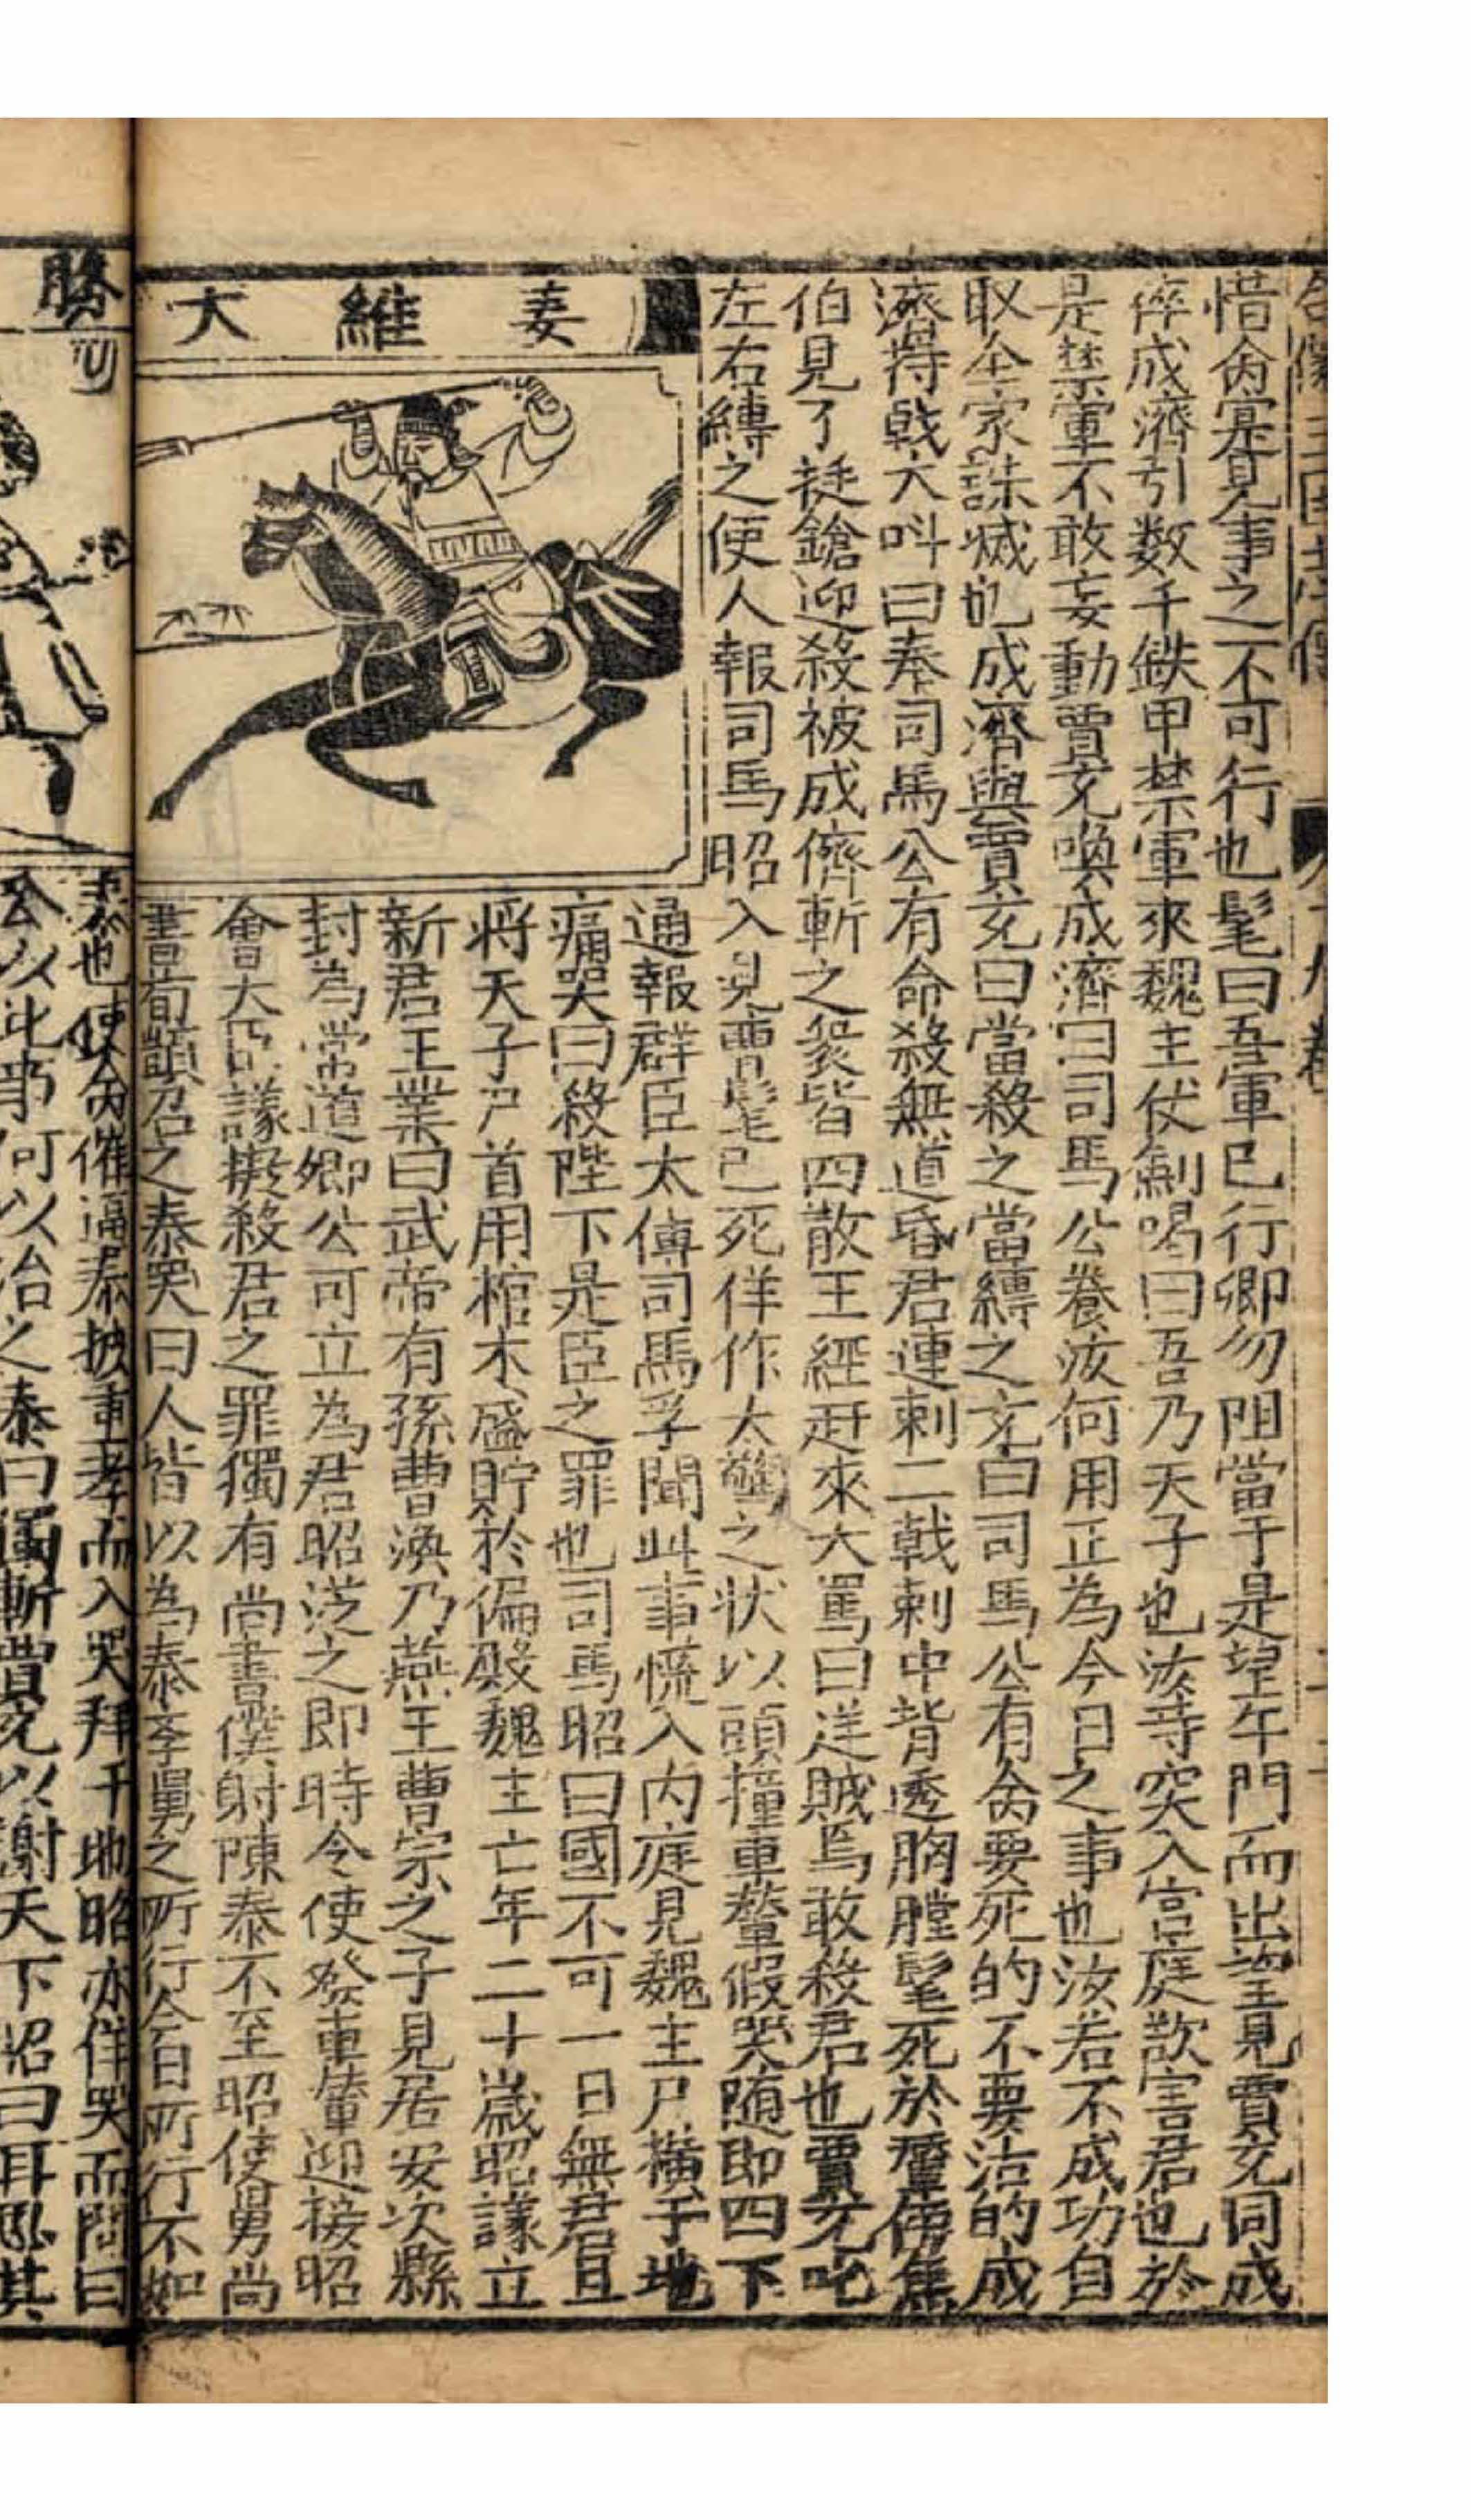 惜命寡見事之不可行也髦曰吾軍已行卿勿阻當于是望午門而出望見賈充同成
倅成濟引数千鉄甲禁軍來魏主仗劍喝曰吾乃天子也汝等突入宫庭欲害君也於
是禁軍不敢妄動賈充喚成濟曰司馬公養汝何用正為今日之事也汝若不成功自
取全家誅滅也成濟與賈充曰當殺之當縛之充曰司馬公有命要死的不要活的成
濟持戟大叫曰奉司馬公有命殺無道昏君連刺二戟刺中背透胸膛髦死於輦傍焦
伯見了挺鎗迎殺被成儕斬之衆皆四散王經赶來大罵曰逆賊焉敢殺君也賈充叱
左右縛之便人報司馬昭入見曹髦已死佯作大驚之状以頭撞車輦假哭随即四下
妻維大
通報群臣太傅司馬孚聞此事慌入内庭見魏主尸横于地
痛哭曰殺陛下是臣之罪也司馬昭曰國不可一日無君且
將天子尸首用棺木盛貯於偏殿魏主亡年二十歲昭議立
新君王業曰武帝有孫曹渙乃燕王曹宗之子見居安次縣
封為常道卿公可立為君昭従之即時令使發車輦迎接昭
會大臣議擬殺君之罪獨有尚書僕射陳泰不至昭使舅尚
書荀顗召之泰哭曰人皆以為泰李舅之所行今日所行不如
勝
泰也使命催逼泰披重孝而入哭拜于地昭亦佯哭而問曰
公以此事何以治之泰曰獨斬賈充以謝天下昭曰再思其